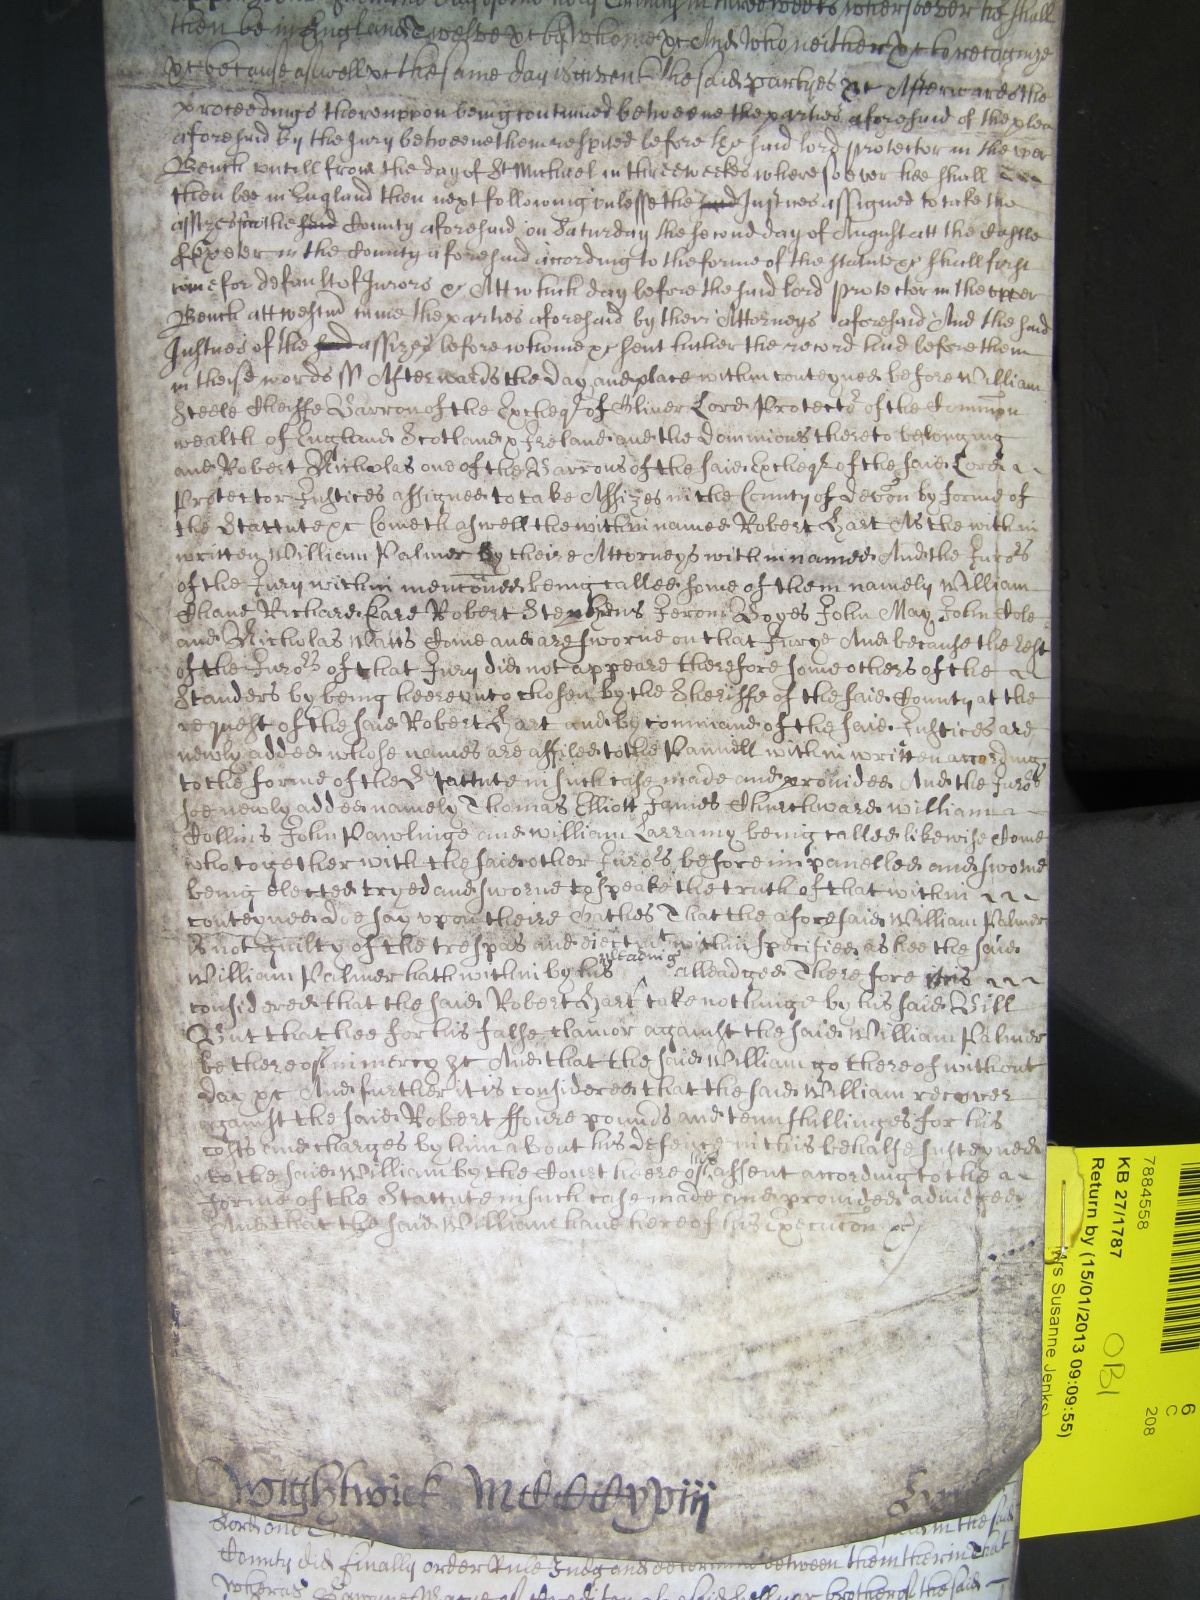 then be in England Twelve &c by whome &c And who neither &c to recognize
&c because aswell &c the same day is given to the said partyes &c Afterwards the
proceedings thereuppon being continued betweene the parties aforesaid of the plea
aforesaid by the Jury betweene them respited before the said lord protector in the upper
Bench untill from the day of St Michael in three weekes wheresoever hee shall
then bee in England then next following unlesse the said Justices assigned to take the
assizes for the said County aforesaid on Saturday the second day of August att the Castle
of Exeter in the County aforesaid according to the forme of the statute &c shall first
come for default of Jurors &c Att which day before the said lord protector in the upper
Bench att westm came the parties aforesaid by their Attorneys aforesaid And the said
Justices of the said assizes before whome &c sent hither the record had before them
in these words ss Afterwards the day and place within conteyned before William
Steele Cheiffe Barron of the Excheqr of Oliver Lord Protector of the Common
wealth of England Scotland & Ireland and the dominions thereto belonging
and Robert Nicholas one of the Barrons of the said Excheqr of the said Lord
Protector Justices assigned to take Assizes in the County of Devon by forme of
the Stattute &c Cometh aswell the within named Robert Hart As the within
written William Palmer by theire Attorneys within named And the Jurors
of the Jury within menconed being called some of them namely William
Chane Richard Kare Robert Stephens Jerom Boyes John May John Cole
and Nicholas Watts Come and are sworne on that Jurye And because the rest
of the Jurors of that Jury did not appeare therefore some others of the
Standers by being heereunto chosen by the Sheriffe of the said County at the
request of the said Robert Hart and by command of the said Justices are
newly added whose names are affiled to the Pannell within written according
to the forme of the Stattute in such case made and provided And the Jurors
soe newly added namely Thomas Elliott James Churchward William
Collins John Rawlinge and William Larramy being called likewise Come
who together with the said other Jurors before impanelled and sworne
being elected tryed and sworne to speake the truth of that within
conteyned doe say upon theire Oathes That the aforesaid William Palmer
is not guilty of the trespas and eiectmt within specified as hee the said
William Palmer hath within by his pleading alleadged Therefore itis
considered that the said Robert Hart take nothinge by his said Bill
But that hee for his false clamor against the said William Palmer
be thereof in mercy &c And that the said William go thereof without
day &c And further it is considered that the said William recover
against the said Robert ffoure pounds and tenn shillinges for his
costs and charges by him about his defence in this behalfe susteyned
to the said William by the Court heere of his assent according to the
forme of the Stattute in such case made and provided adiudged
And that the said William have hereof his Execucon &c
Wightwick MCCCCxviii
County did finally order Rule Judge and determine between them therin That
7884558
KB 27/1787
Return by (15/01/2013 09:09:55)
Mrs Susanne Jenks)
OBI
6
C
208